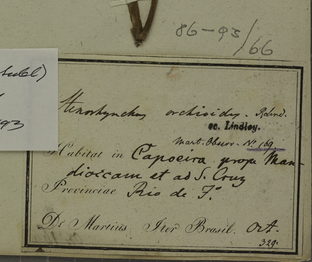 86-93/66
93
Stenorhynchus orchioides. Rchnd.
ec. Lindley.
Mart. Observ. No 169.
Habitat in Capoeira prope Man-
dioccam et ad S. Cruz
Provinciae Rio de J.o
Dr Martius, Iter Brasil. Oct.
329.